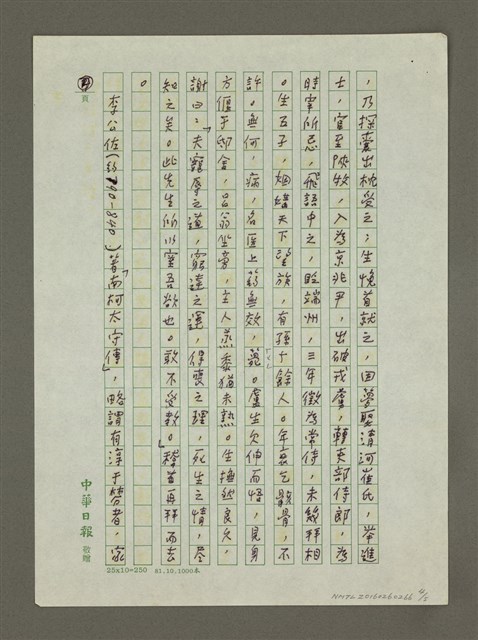 ，乃探囊出枕受之；生俛首就之，因夢娶清河崔氏，举進
士，官至陝牧，入為京兆尹，出破戎虜，轉吏部侍郎，為
時宰所忌，飛語中之，貶端州，三年徵為常侍，未幾拜相
。生五子，姻媾天下望族，有孫十餘人。年衰乞骸骨，不
許。無何，病，名医上葯無效，薨。盧生欠伸而悟，見身
方偃于邸舍，呂翁坐旁，主人蒸黍猶未熟。生撫然良久，
謝曰：「夫寵辱之道，窮達之運，得喪之理，死生之情，盡
知之矣。此先生所以窒吾欲也。敢不受教。」稽首再拜而去
。
李公佐(約770-850)著「南柯太守傳」，略謂有淳于棼者，家
頁
中華日報 敬贈
25x10=250 81.10.1000本
NMTL20160260266 4/5